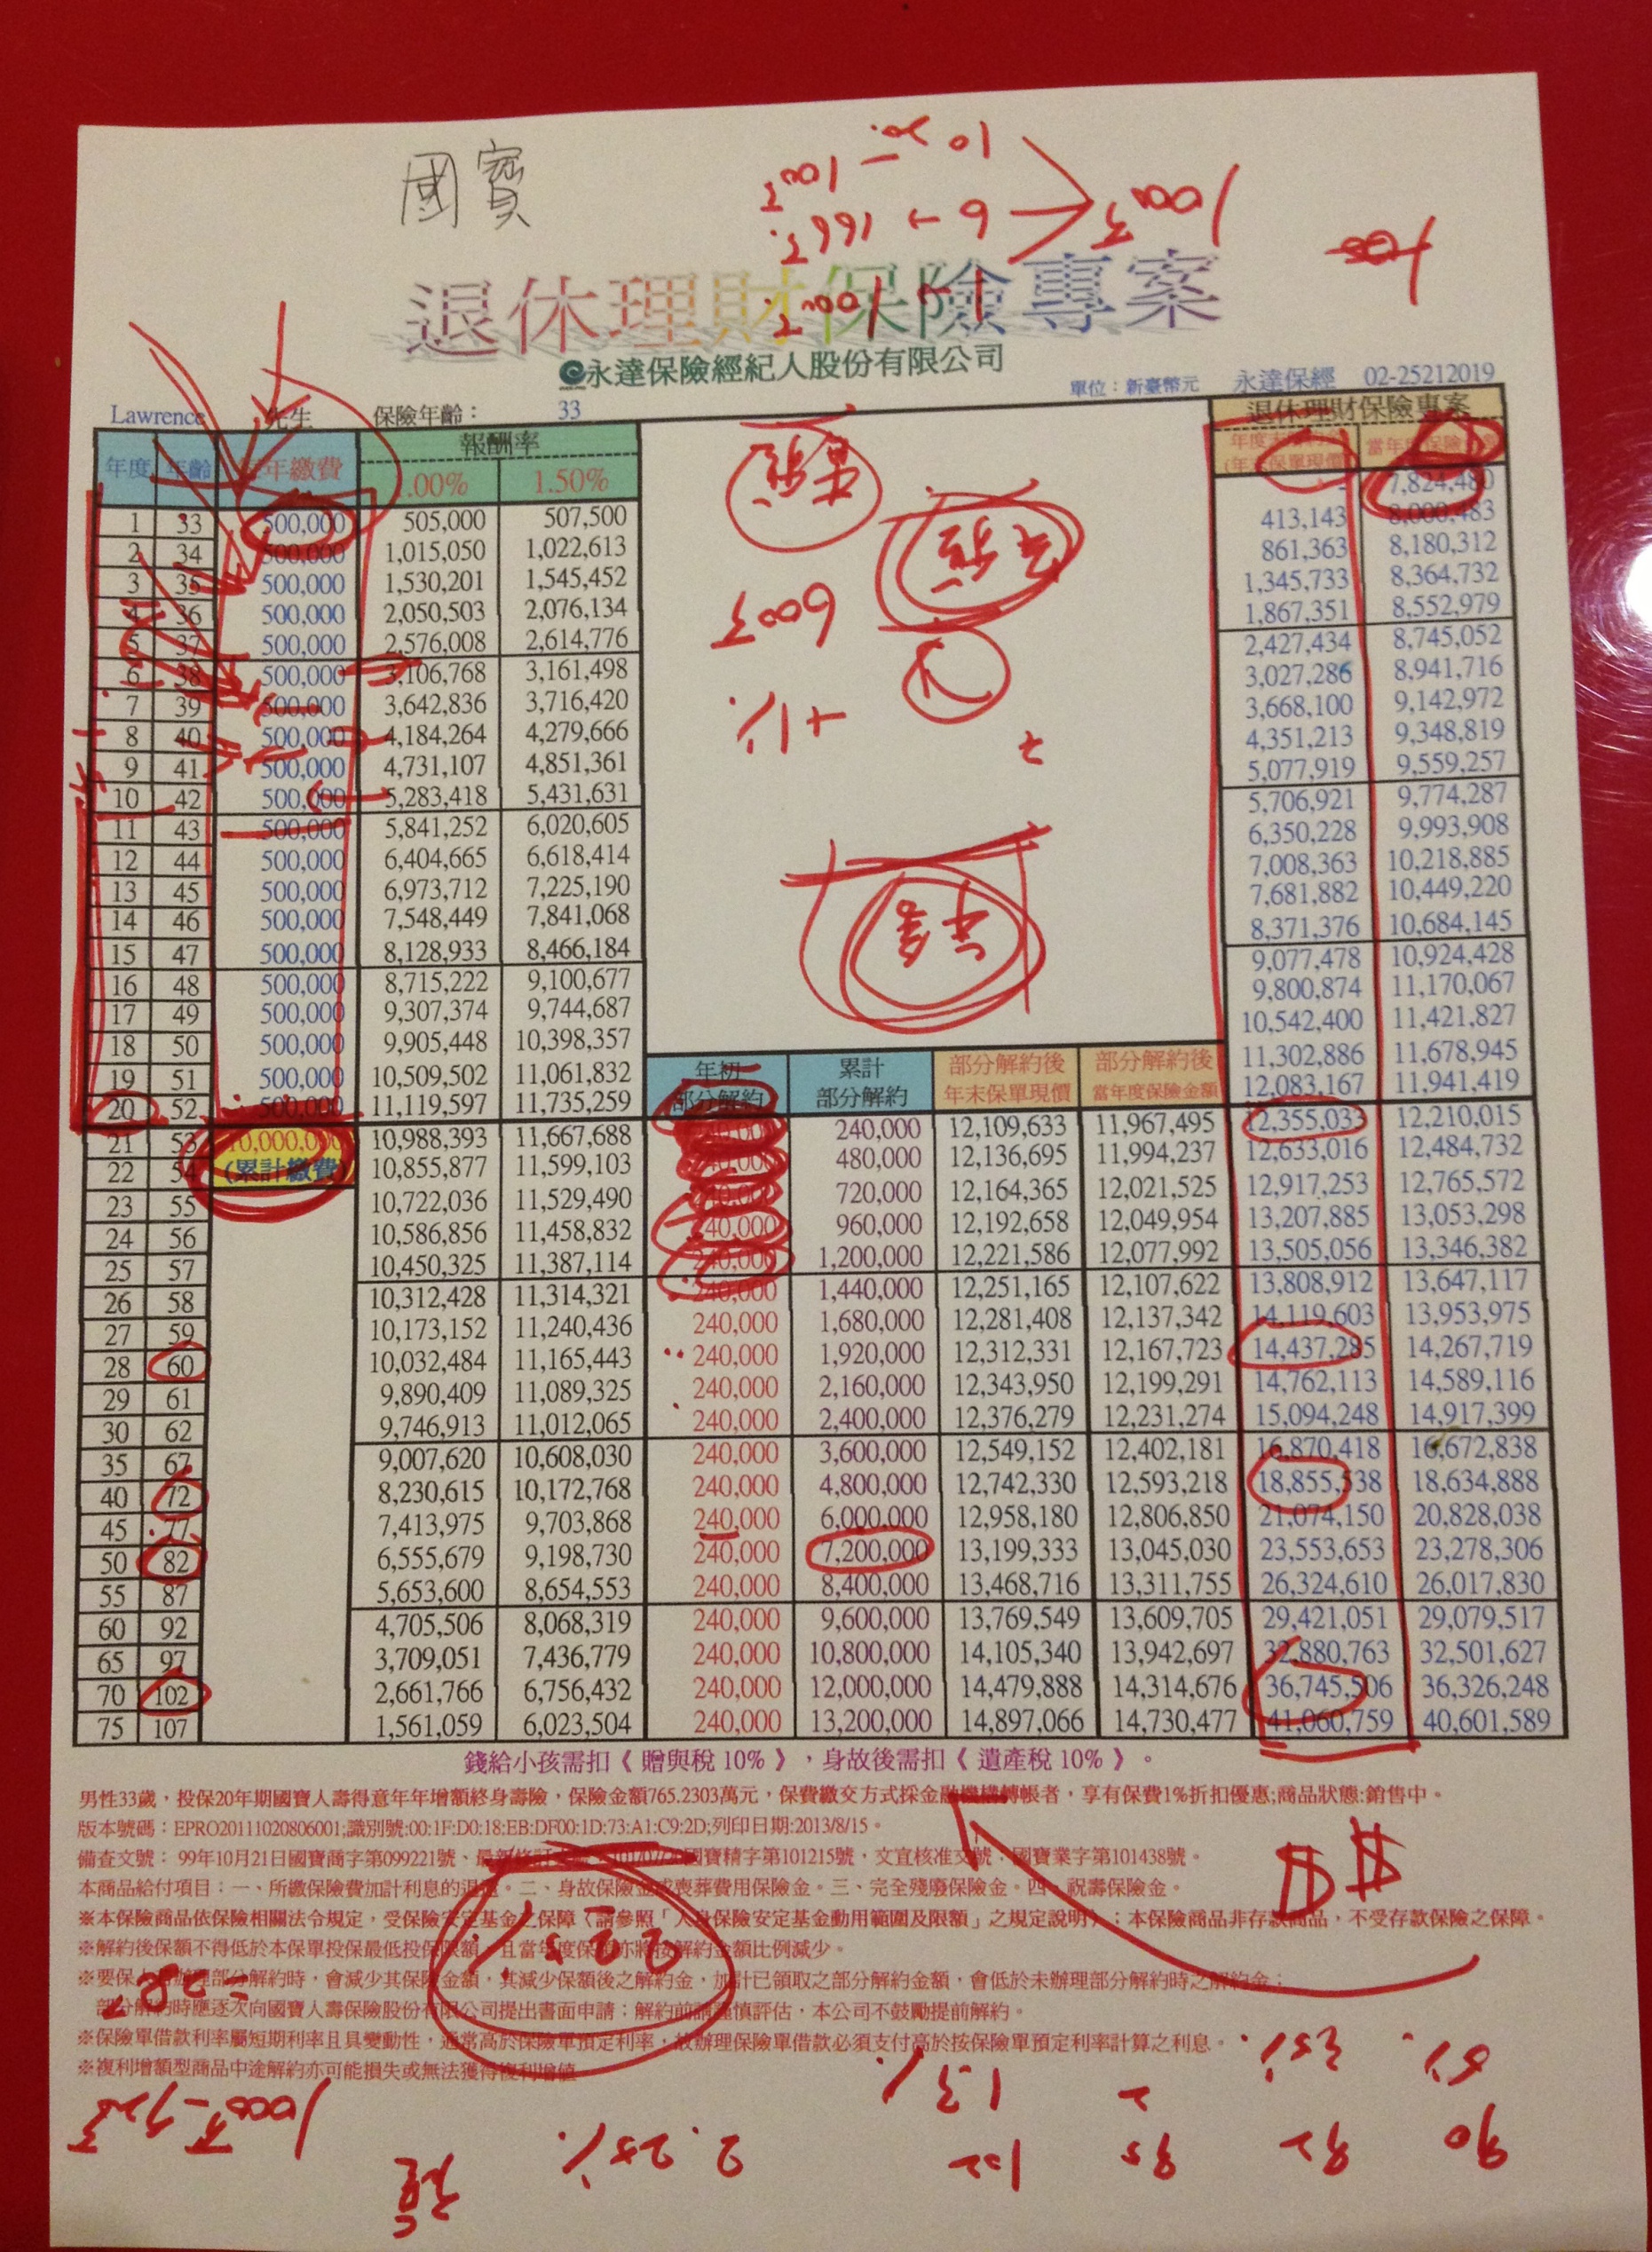 國寶
退休理財保險專案
永達保險經紀人股份有限公司
單位：新臺幣元 永達保經 02-25212019
Lawrence 先生 保險年齡： 33
退休理財保險專案
年度 年齡 年繳費 報酬率
.00% 1.50%
7,824,480
1 33 500,000 505,000 507,500 413,143 8,000,483
2 34 500,000 1,015,050 1,022,613 861,363 8,180,312
3 35 500,000 1,530,201 1,545,452 1,345,733 8,364,732
4 36 500,000 2,050,503 2,076,134 1,867,351 8,552,979
5 37 500,000 2,576,008 2,614,776 2,427,434 8,745,052
6 38 500,000 3,106,768 3,161,498 3,027,286 8,941,716
7 39 500,000 3,642,836 3,716,420 3,668,100 9,142,972
8 40 500,000 4,184,264 4,279,666 4,351,213 9,348,819
9 41 500,000 4,731,107 4,851,361 5,077,919 9,559,257
10 42 500,000 5,283,418 5,431,631 5,706,921 9,774,287
11 43 500,000 5,841,252 6,020,605 6,350,228 9,993,908
12 44 500,000 6,404,665 6,618,414 7,008,363 10,218,885
13 45 500,000 6,973,712 7,225,190 7,681,882 10,449,220
14 46 500,000 7,548,449 7,841,068 8,371,376 10,684,145
15 47 500,000 8,128,933 8,466,184 9,077,478 10,924,428
16 48 500,000 8,715,222 9,100,677 9,800,874 11,170,067
17 49 500,000 9,307,374 9,744,687 10,542,400 11,421,827
18 50 500,000 9,905,448 10,398,357 11,302,886 11,678,945
19 51 500,000 10,509,502 11,061,832 12,083,167 11,941,419
年初 累計 部分解約後 部分解約後
部分解約 部分解約 年末保單現價 當年度保險金額
20 52 500,000 11,119,597 11,735,259 12,355,033 12,210,015
21 53 10,000,000 10,988,393 11,667,688 240,000 12,109,633 11,967,495 12,633,016 12,484,732
22 54 (累計繳費) 10,855,877 11,599,103 480,000 12,136,695 11,994,237 12,917,253 12,765,572
23 55 10,722,036 11,529,490 720,000 12,164,365 12,021,525 13,207,885 13,053,298
24 56 10,586,856 11,458,832 240,000 960,000 12,192,658 12,049,954 13,505,056 13,346,382
25 57 10,450,325 11,387,114 240,000 1,200,000 12,221,586 12,077,992 13,808,912 13,647,117
26 58 10,312,428 11,314,321 240,000 1,440,000 12,251,165 12,107,622 14,119,603 13,953,975
27 59 10,173,152 11,240,436 240,000 1,680,000 12,281,408 12,137,342 14,437,285 14,267,719
28 60 10,032,484 11,165,443 240,000 1,920,000 12,312,331 12,167,723 14,762,113 14,589,116
29 61 9,890,409 11,089,325 240,000 2,160,000 12,343,950 12,199,291 15,094,248 14,917,399
30 62 9,746,913 11,012,065 240,000 2,400,000 12,376,279 12,231,274
35 67 9,007,620 10,608,030 240,000 3,600,000 12,549,152 12,402,181 16,870,418 16,672,838
40 72 8,230,615 10,172,768 240,000 4,800,000 12,742,330 12,593,218 18,855,538 18,634,888
45 77 7,413,975 9,703,868 240,000 6,000,000 12,958,180 12,806,850 21,074,150 20,828,038
50 82 6,555,679 9,198,730 240,000 7,200,000 13,199,333 13,045,030 23,553,653 23,278,306
55 87 5,653,600 8,654,553 240,000 8,400,000 13,468,716 13,311,755 26,324,610 26,017,830
60 92 4,705,506 8,068,319 240,000 9,600,000 13,769,549 13,609,705 29,421,051 29,079,517
65 97 3,709,051 7,436,779 240,000 10,800,000 14,105,340 13,942,697 32,880,763 32,501,627
70 102 2,661,766 6,756,432 240,000 12,000,000 14,479,888 14,314,676 36,745,506 36,326,248
75 107 1,561,059 6,023,504 240,000 13,200,000 14,897,066 14,730,477 41,060,759 40,601,589
錢給小孩需扣《 贈與稅 10% 》，身故後需扣《 遺產稅 10% 》。
男性33歲，投保20年期國寶人壽得意年年增額終身壽險，保險金額765.2303萬元，保費繳交方式採金融機構轉帳者，享有保費1%折扣優惠;商品狀態:銷售中。
版本號碼：EPRO20111020806001;識別號:00:1F:D0:18:EB:DF00:1D:73:A1:C9:2D;列印日期:2013/8/15。
備查文號： 99年10月21日國寶商字第099221號、國寶精字第101215號，文宣核准文號：國寶業字第101438號。
本商品給付項目：一、所繳保險費加計利息的退還。二、身故保險金或喪葬費用保險金。三、完全殘廢保險金。四、祝壽保險金。
※本保險商品依保險相關法令規定，受保險安定基金之保障（請參照「人身保險安定基金動用範圍及限額」之規定說明）；本保險商品非存款商品，不受存款保險之保障。
※解約後保額不得低於本保單投保最低投保限額，且當年度保額亦將按解約金額比例減少。
※要保人辦理部分解約時，會減少其保險金額，其減少保額後之解約金，加計已領取之部分解約金額，會低於未辦理部分解約時之解約金；
部分解約時應逐次向國寶人壽保險股份有限公司提出書面申請；解約前請謹慎評估，本公司不鼓勵提前解約。
※保險單借款利率屬短期利率且具變動性，通常高於保險單預定利率，故辦理保險單借款必須支付高於按保險單預定利率計算之利息。
※複利增額型商品中途解約亦可能損失或無法獲得複利增值
$$
2.25%